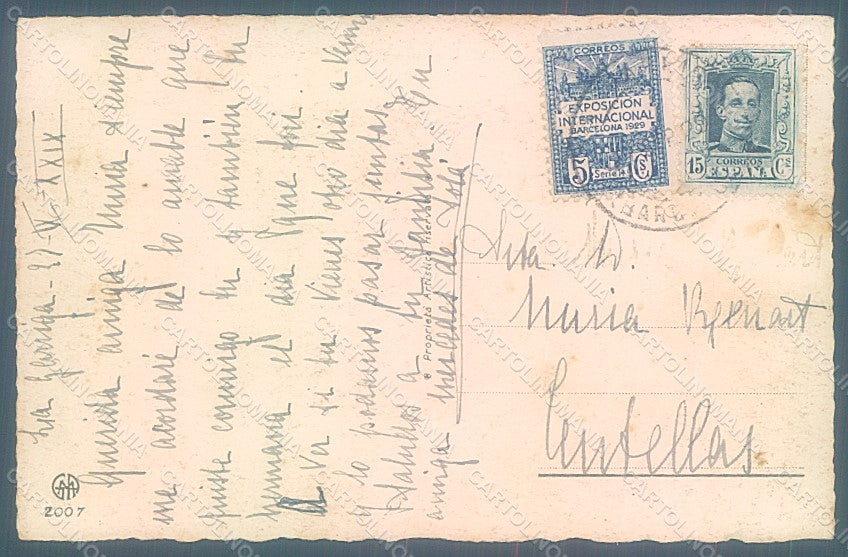 La Garriga - 27-VI-XXIX
Querida amiga Nuria siempre
me acordaré de lo amable que
fuiste conmigo tu y también tu
hermana el dia que fui.
A ver si tu vienes otro dia a vernos
y lo podamos pasar juntas,
Saludos a tu familia tu
amiga Mercedes de Solá
2007
Proprietà Artistica Riservata
CORREOS
EXPOSICIÓN
INTERNACIONAL
BARCELONA 1929
5 Serie A Cs
15 CORREOS Cs
ESPAÑA
BARC
Srta. D.
Nuria
Centellas
CARTOLINOMANIA